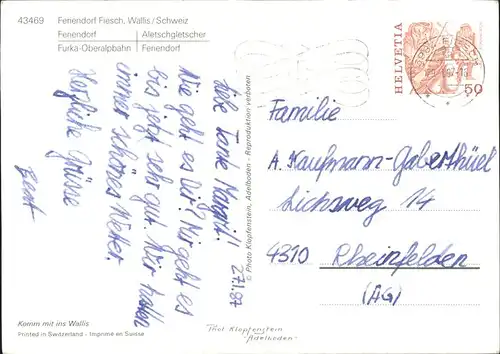 43469 Feriendorf Fiesch, Wallis/Schweiz
Feriendorf Aletschgletscher
Furka-Oberalpbahn Feriendorf
Liebe Tante Margrit!
Wie geht es Dir? Mir geht es
bis jetzt sehr gut. Wir haben
immer schönes Wetter.
Herzliche Grüsse
Beat
27.1.87
© Photo Klopfenstein, Adelboden - Reproduktion verboten
HELVETIA
50
Familie
A. Kaufmann-Gaberthüel
Lichsweg 14
4310 Rheinfelden
(AG)
Komm mit ins Wallis
Printed in Switzerland - Imprimé en Suisse
Phot Klopfenstein
"Adelboden"